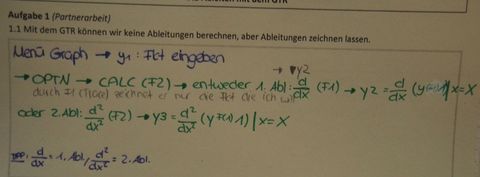 Aufgabe 1 (Partnerarbeit)
1.1 Mit dem GTR können wir keine Ableitungen berechnen, aber Ableitungen zeichnen lassen.
Menü Graph → y1: Fkt eingeben
→ y2
→ OPTN → CALC (F2) → entweder 1. Abl: d/dx (F1) → y2 = d/dx (y F(1) 1)|x=X
durch F1 zeichnet er nur die Fkt die ich will
oder 2. Abl: d²/dx² (F2) → y3 = d²/dx² (y F(1) 1)|x=X
d/dx = 1. Abl, d²/dx² = 2. Abl.